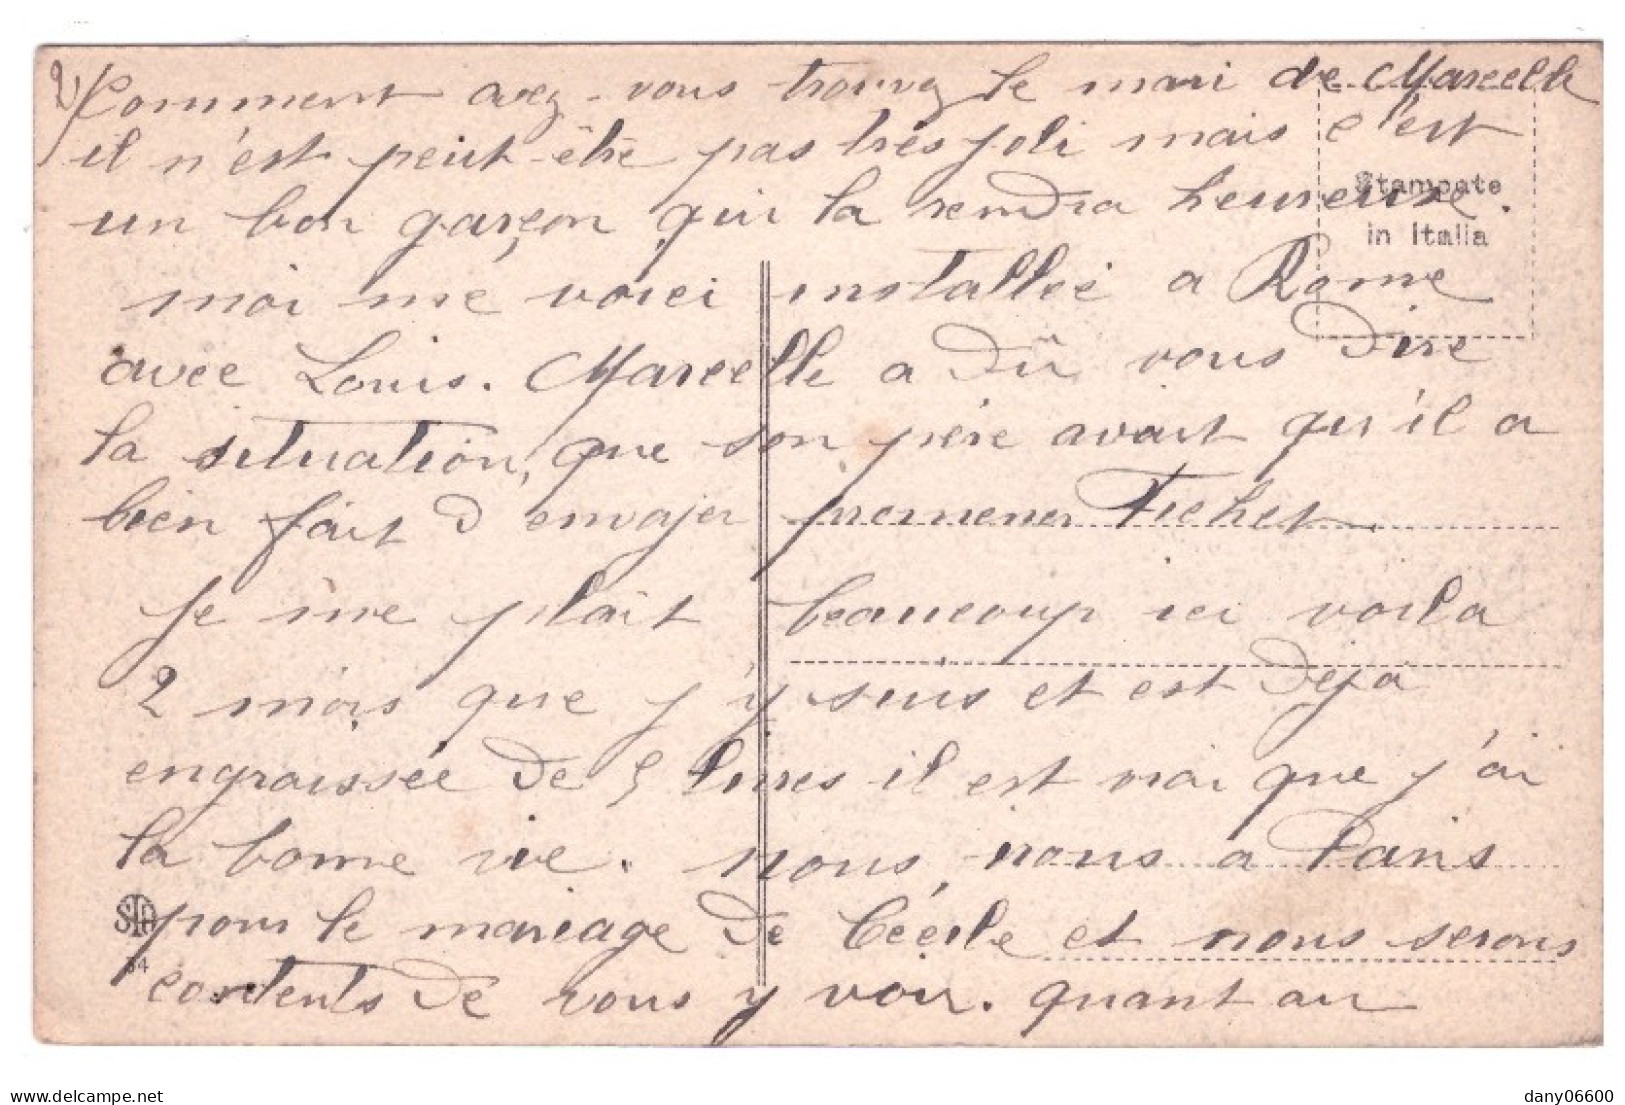 2) Comment avez-vous trouvé le mari de Marcelle
il n'est peut-être pas très joli mais c'est
un bon garçon qui la rendra heureuse.
Stampate
in Italia
moi me voici installée a Rome
avec Louis. Marcelle a dû vous dire
la situation, que son père avait qu'il a
bien fait d'envoyer promener Fichet
je me plait beaucoup ici voila
2 mois que j'y suis et est déjà
engraissée de 5 livres il est vrai que j'ai
la bonne vie. nous, irons a Paris
STA
pour le mariage de Cécile et nous serons
34
contents de vous y voir. quant au
delcampe.net
dany06600